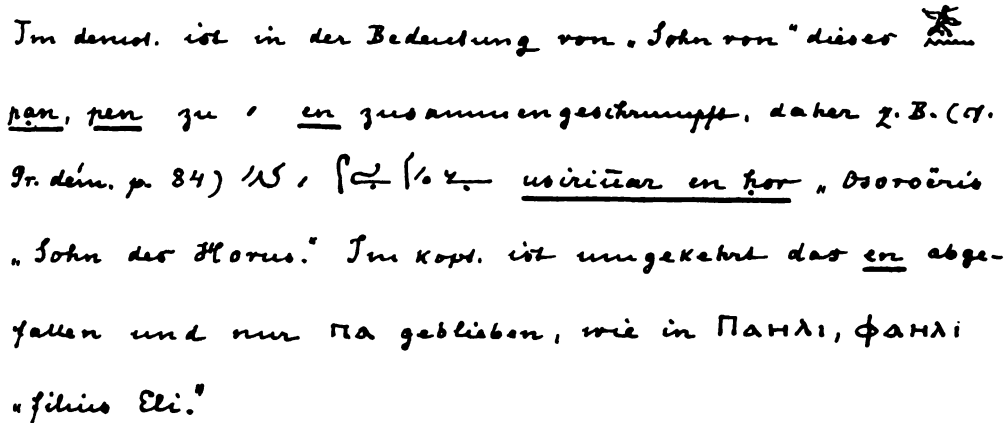 Im demot. ist in der Bedeutung von „Sohn von" dieses
pan, pen zu en zusammengeschrumpft, daher z. B. (cf.
Gr. dém. p. 84) usiriūar en ḥor „Osoroëris
„Sohn des Horus." Im kopt. ist umgekehrt das en abge-
fallen und nur πα geblieben, wie in Πανλι, φανλι
„filius Eli."